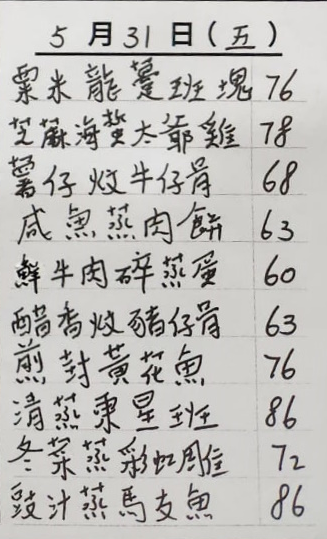 5月31日(五)
粟米龍躉班塊 76
芝麻海蜇太爺雞 78
薯仔炆牛仔骨 68
咸魚蒸肉餅 63
鮮牛肉碎蒸蛋 60
醋香炆豬仔骨 63
煎封黃花魚 76
清蒸東星班 86
冬菜蒸彩虹鵰 72
豉汁蒸馬友魚 86